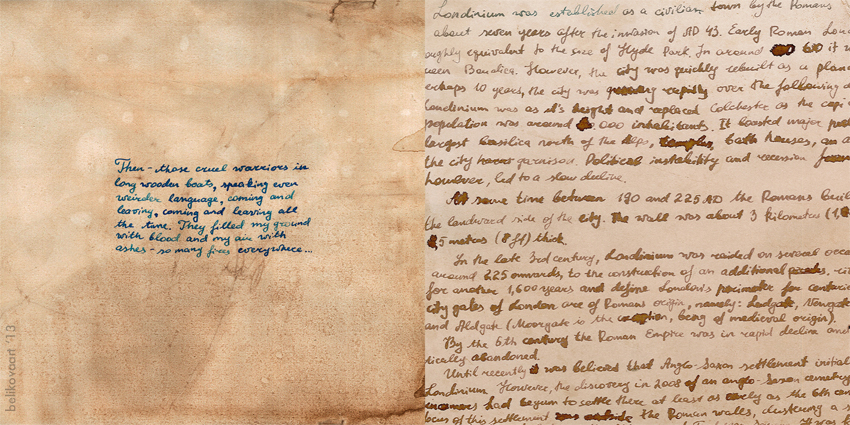 Then - those cruel warriors in
long wooden boats, speaking even
weirder language, coming and
leaving, coming and leaving all
the time. They filled my ground
with blood and my air with
ashes - so many fires everywhere...
belikovaart '13
Londinium was established as a civilian town by the Romans
about seven years after the invasion of AD 43. Early Roman Lon
oughly equivalent to the size of Hyde Park. In around 60 it w
ueen Boudica. However, the city was quickly rebuilt as a plan
erhaps 10 years, the city was growing rapidly over the following d
Londinium was at it's height and replaced Colchester as the capi
population was around 000 inhabitants. It boasted major
largest basilica north of the Alps, temples, bath houses, an a
the city garrison. Political instability and recession
however, led to a slow decline.
At some time between 190 and 225 AD the Romans buil
the landward side of the city. The wall was about 3 kilometres (1,
5 metres (8 ft) thick.
In the late 3rd century, Londinium was raided on several occa
around 225 onwards, to the construction of an additional
for another 1,600 years and define London's perimeter for centurie
city gates of London are of Romans origin, namely: Ludgate, Newgat
and Aldgate (Moorgate is the exception, being of medieval origin).
By the 5th century the Roman Empire was in rapid decline and
tically abandoned.
Until recently it was believed that Anglo-Saxon settlement initial
Londinium. However, the discovery in 2008 of an anglo-Saxon cemetery
incomers had begun to settle there at least as early as the 6th cen
focus of this settlement was outside the Roman walls, clustering a s